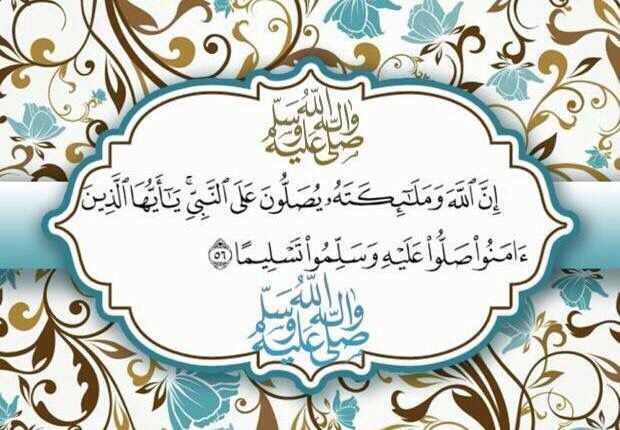 صلى الله عليه وسلم
إِنَّ ٱللَّهَ وَمَلَـٰٓئِكَتَهُۥ يُصَلُّونَ عَلَى ٱلنَّبِىِّ ۚ يَـٰٓأَيُّهَا ٱلَّذِينَ
ءَامَنُوا۟ صَلُّوا۟ عَلَيْهِ وَسَلِّمُوا۟ تَسْلِيمًا ٥٦
صلى الله عليه وسلم